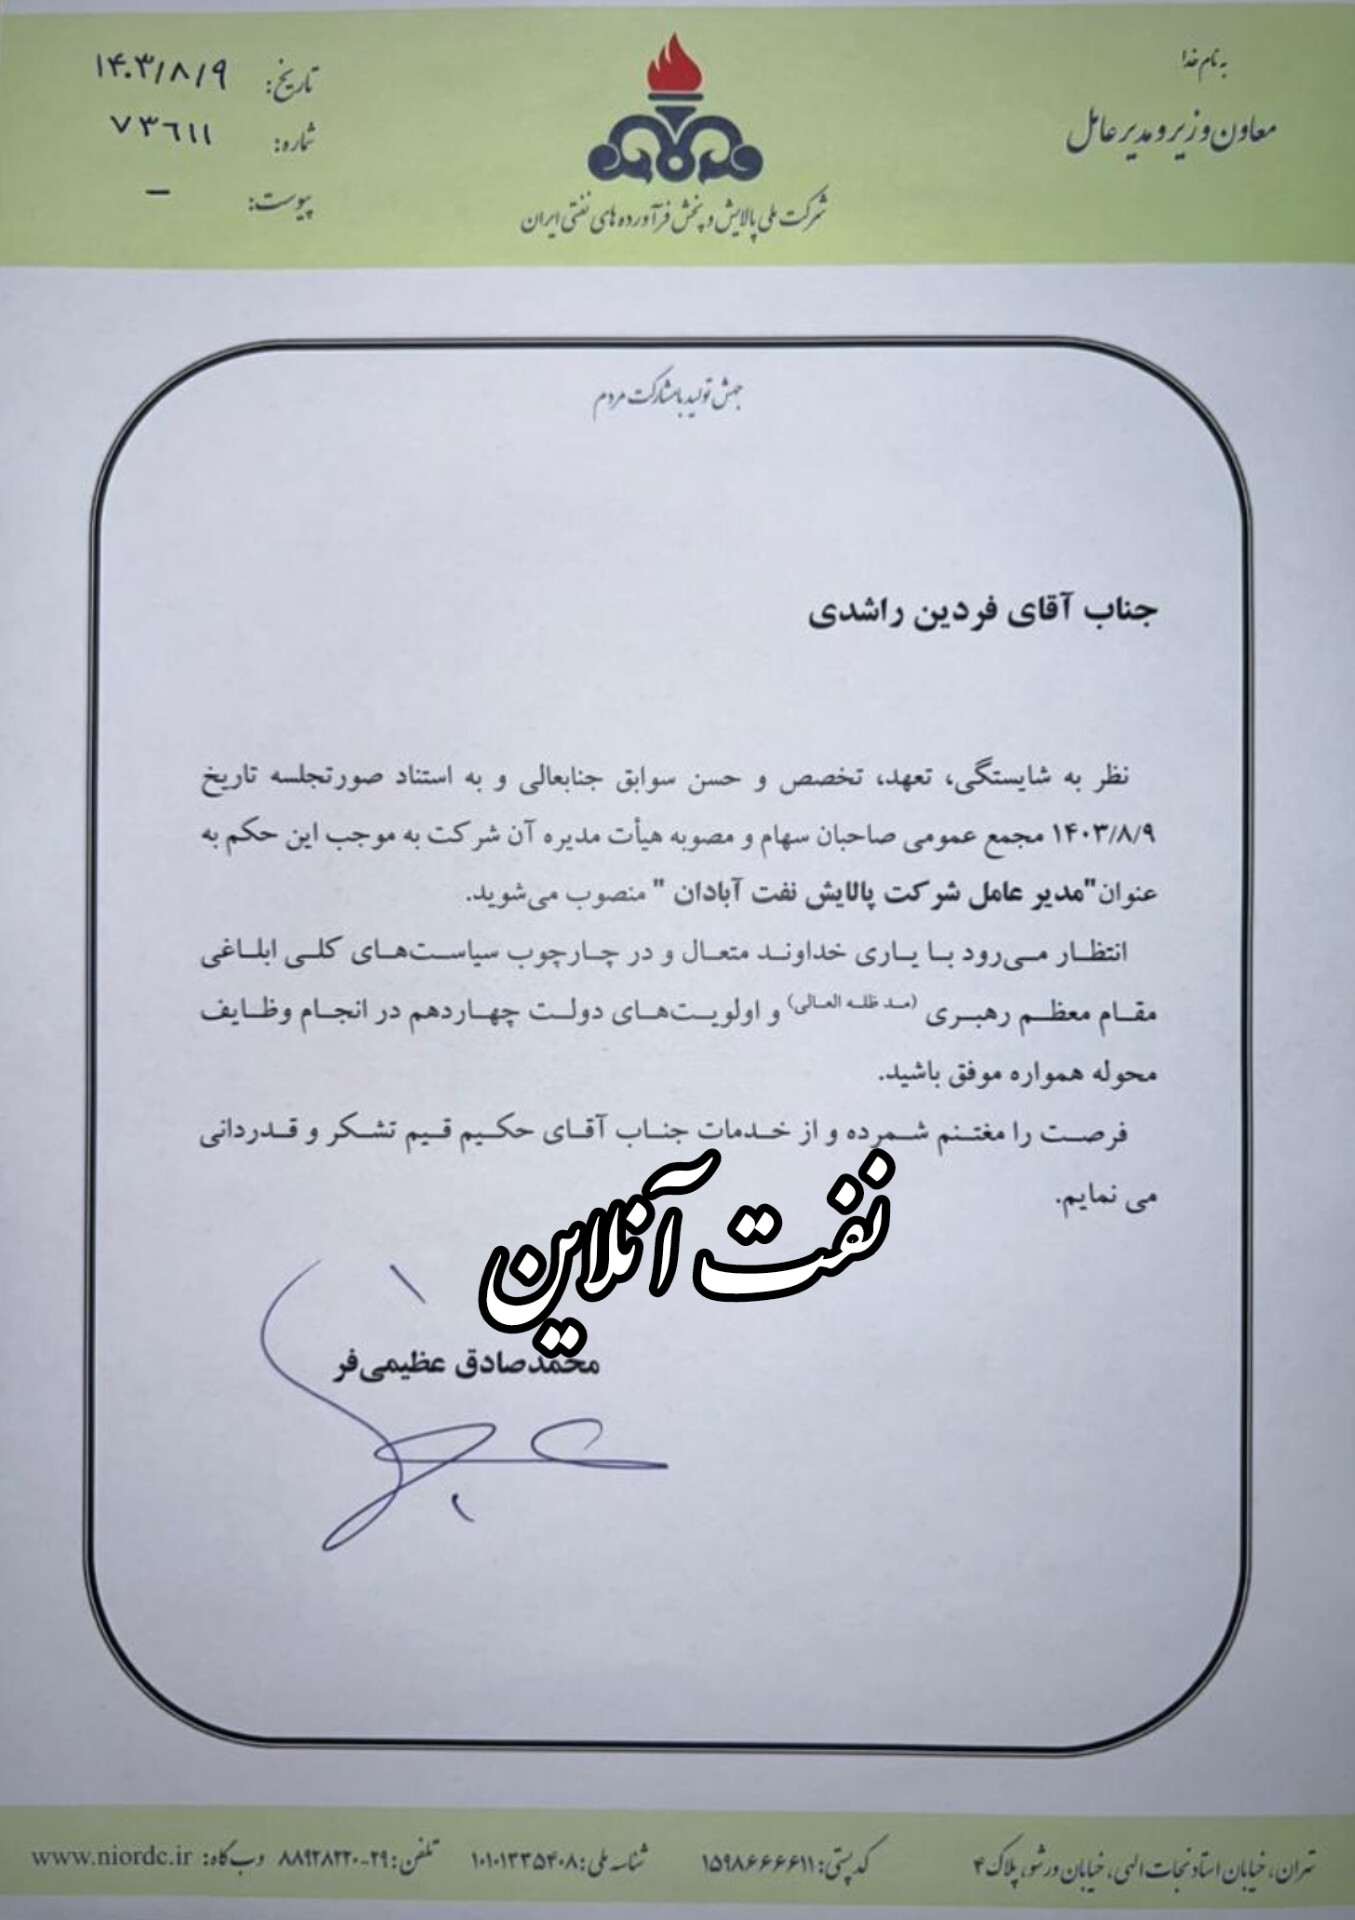 به نام خدا
معاون وزیر و مدیر عامل
تاریخ: ۱۴۰۳/۸/۹
شماره: ۷۳۶۱۱
پیوست: –
شرکت ملی پالایش و پخش فرآورده های نفتی ایران
جهش تولید با مشارکت مردم
جناب آقای فردین راشدی
نظر به شایستگی، تعهد، تخصص و حسن سوابق جنابعالی و به استناد صورتجلسه تاریخ
۱۴۰۳/۸/۹ مجمع عمومی صاحبان سهام و مصوبه هیأت مدیره آن شرکت به موجب این حکم به
عنوان "مدیر عامل شرکت پالایش نفت آبادان " منصوب می‌شوید.
انتظار می‌رود با یاری خداوند متعال و در چارچوب سیاست‌های کلی ابلاغی
مقام معظم رهبری (مد ظله العالی) و اولویت‌های دولت چهاردهم در انجام وظایف
محوله همواره موفق باشید.
فرصت را مغتنم شمرده و از خدمات جناب آقای حکیم قیم تشکر و قدردانی
می نمایم.
نفت آنلاین
محمدصادق عظیمی‌فر
تهران، خیابان استاد نجات الهی، خیابان ورشو، پلاک ۴ کد پستی: ۱۵۹۸۶۶۶۶۱۱ شناسه ملی: ۱۰۱۰۱۳۳۵۴۰۸ تلفن: ۲۹-۸۸۹۲۸۲۲۰ وب گاه: www.niordc.ir